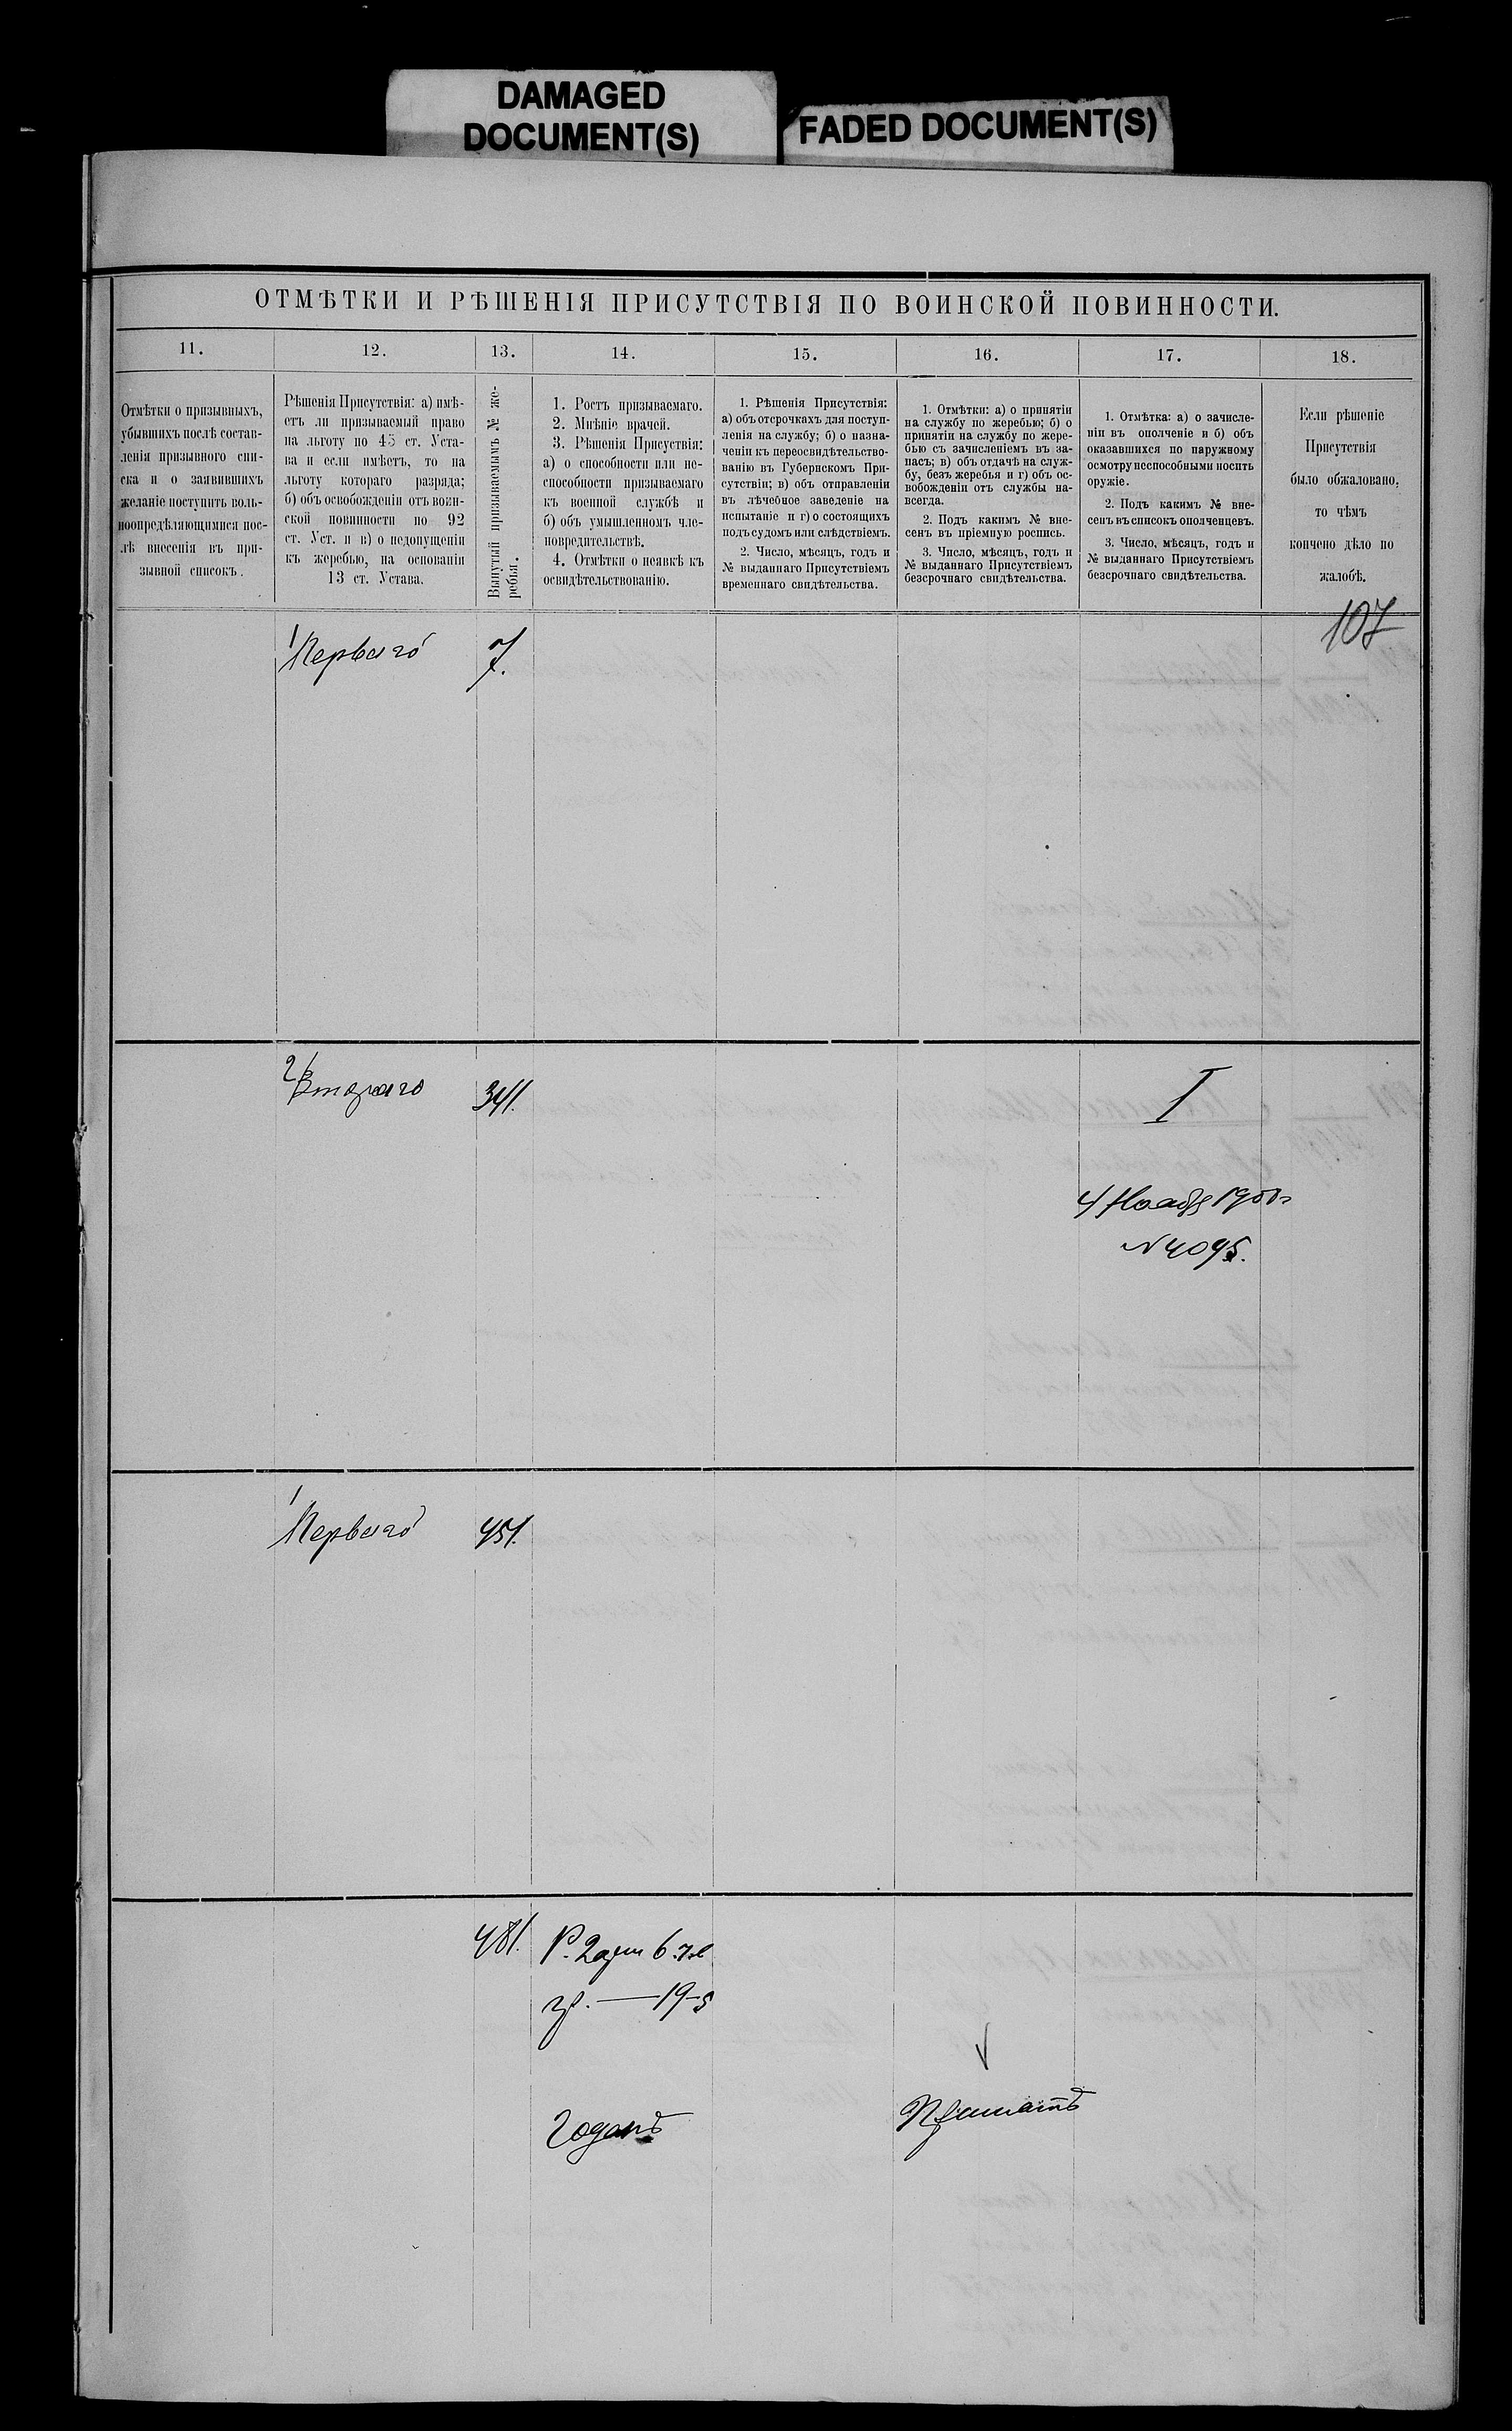 DAMAGED
DOCUMENT(S)
FADED DOCUMENT(S)
ОТМѢТКИ И РѢШЕНІЯ ПРИСУТСТВІЯ ПО ВОИНСКОЙ ПОВИННОСТИ.
11.
12.
13.
14.
15.
16.
17.
18.
Отмѣтки о призывныхъ,
убывшихъ послѣ состав-
ленія призывного спи-
ска и о заявившихъ
желаніе поступить воль-
ноопредѣляющимися пос-
лѣ внесенія въ при-
зывной списокъ.
Рѣшенія Присутствія: а) имѣ-
етъ ли призываемый право
на льготу по 45 ст. Уста-
ва и если имѣетъ, то на
льготу котораго разряда;
б) объ освобожденіи отъ воин-
ской повинности по 92
ст. Уст. и в) о недопущеніи
къ жеребью, на основаніи
13 ст. Устава.
Вынутый призываемымъ № же-
ребья.
1. Ростъ призываемаго.
2. Мнѣніе врачей.
3. Рѣшенія Присуствія:
а) о способности или не-
способности призываемаго
къ военной службѣ и
б) объ умышленномъ чле-
новредительствѣ.
4. Отмѣтки о неявкѣ къ
освидѣтельствованію.
1. Рѣшенія Присутствія:
а) объ отсрочкахъ для поступ-
ленія на службу; б) о назна-
ченіи къ переосвидѣтельство-
ванію въ Губернскомъ При-
сутствіи; в) объ отправленіи
въ лѣчебное заведеніе на
испытаніе и г) о состоящихъ
подъ судомъ или слѣдствіемъ.
2. Число, мѣсяцъ, годъ и
№ выданнаго Присутствіемъ
временнаго свидѣтельства.
1. Отмѣтки: а) о принятіи
на службу по жеребью; б) о
принятіи на службу по жере-
бью съ зачисленіемъ въ за-
пасъ; в) объ отдачѣ на служ-
бу, безъ жеребья и г) объ ос-
вобожденіи отъ службы на-
всегда.
2. Подъ какимъ № вне-
сенъ въ пріемную роспись.
3. Число, мѣсяцъ, годъ и
№ выданнаго Присутствіемъ
безсрочнаго свидѣтельства.
1. Отмѣтка: а) о зачисле-
ніи въ ополченіе и б) объ
оказавшихся по наружному
осмотру неспособными носить
оружіе.
2. Подъ какимъ № вне-
сенъ въ списокъ ополченцевъ.
3. Число, мѣсяцъ, годъ и
№ выданнаго Присутствіемъ
безсрочнаго свидѣтельства.
Если рѣшеніе
Присутствія
было обжаловано,
то чѣмъ
кончено дѣло по
жалобѣ.
107
1/
Перваго
7.
2/
Втораго
341.
I
4 Нояб 190
№ 4095.
1
Перваго
451.
481.
Р. 2 арш 6
гр. — 19
Годенъ
Принятъ